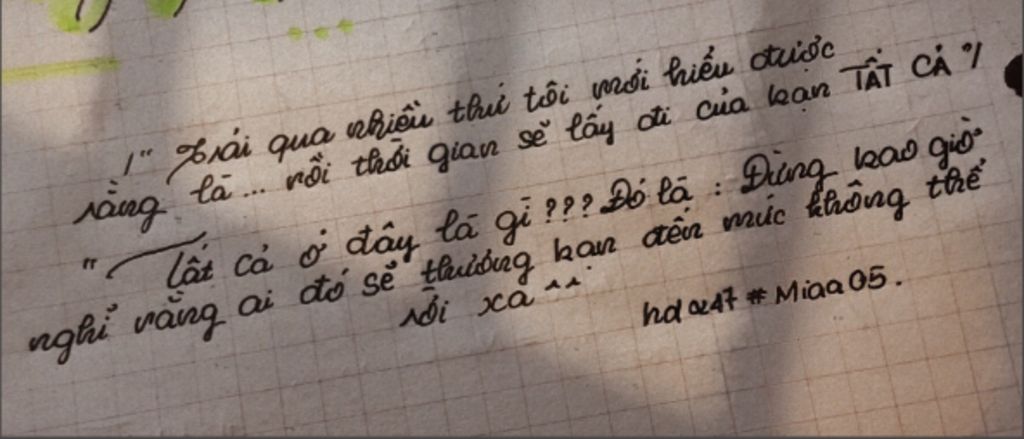 /" Trải qua nhiều thứ tôi mới hiểu được
rằng là... rồi thời gian sẽ lấy đi của bạn TẤT CẢ "/
" Tất cả ở đây là gì ??? Đó là : Đừng bao giờ
nghĩ rằng ai đó sẽ thương bạn đến mức không thể
rời xa ^^
#Miaa05.